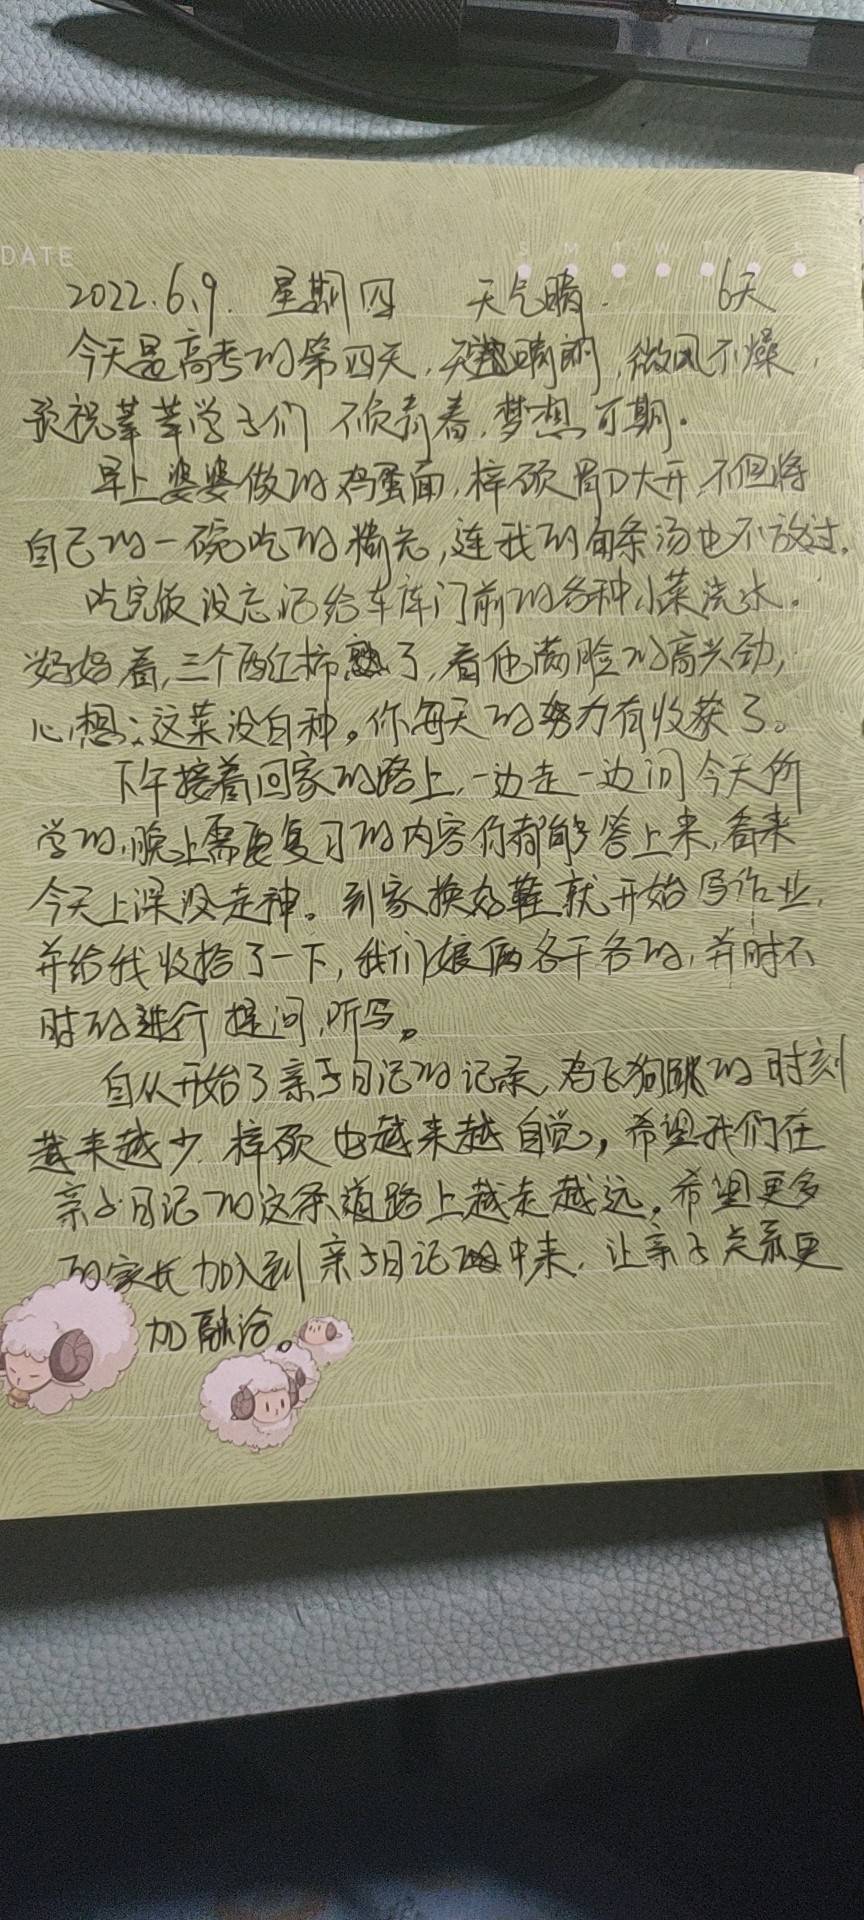 DATE
S M T W T F S
2022.6.9. 星期四 天气晴. 6天
今天是高考的第四天,天晴朗,微风不燥,
预祝莘莘学子们不负青春,梦想可期.
早上婆婆做的鸡蛋面,梓硕胃口大开,不但将
自己的一碗吃的精光,连我的面条汤也不放过.
吃完饭没忘记给车库门前的各种小菜浇水。
妈妈看,三个西红柿熟了,看他满脸的高兴劲,
心想:这菜没白种。你每天的努力有收获了。
下午接着回家的路上,一边走一边问今天所
学的,晚上需要复习的内容你都能够答上来,看来
今天上课没走神。到家换好鞋就开始写作业,
并给我收拾了一下,我们娘俩各干各的,并时不
时的进行提问,听写。
自从开始了亲子日记的记录,鸡飞狗跳的时刻
越来越少.梓硕也越来越自觉,希望我们在
亲子日记的这条道路上越走越远。希望更多
的家长加入到亲子日记中来.让亲子关系更
加融洽。